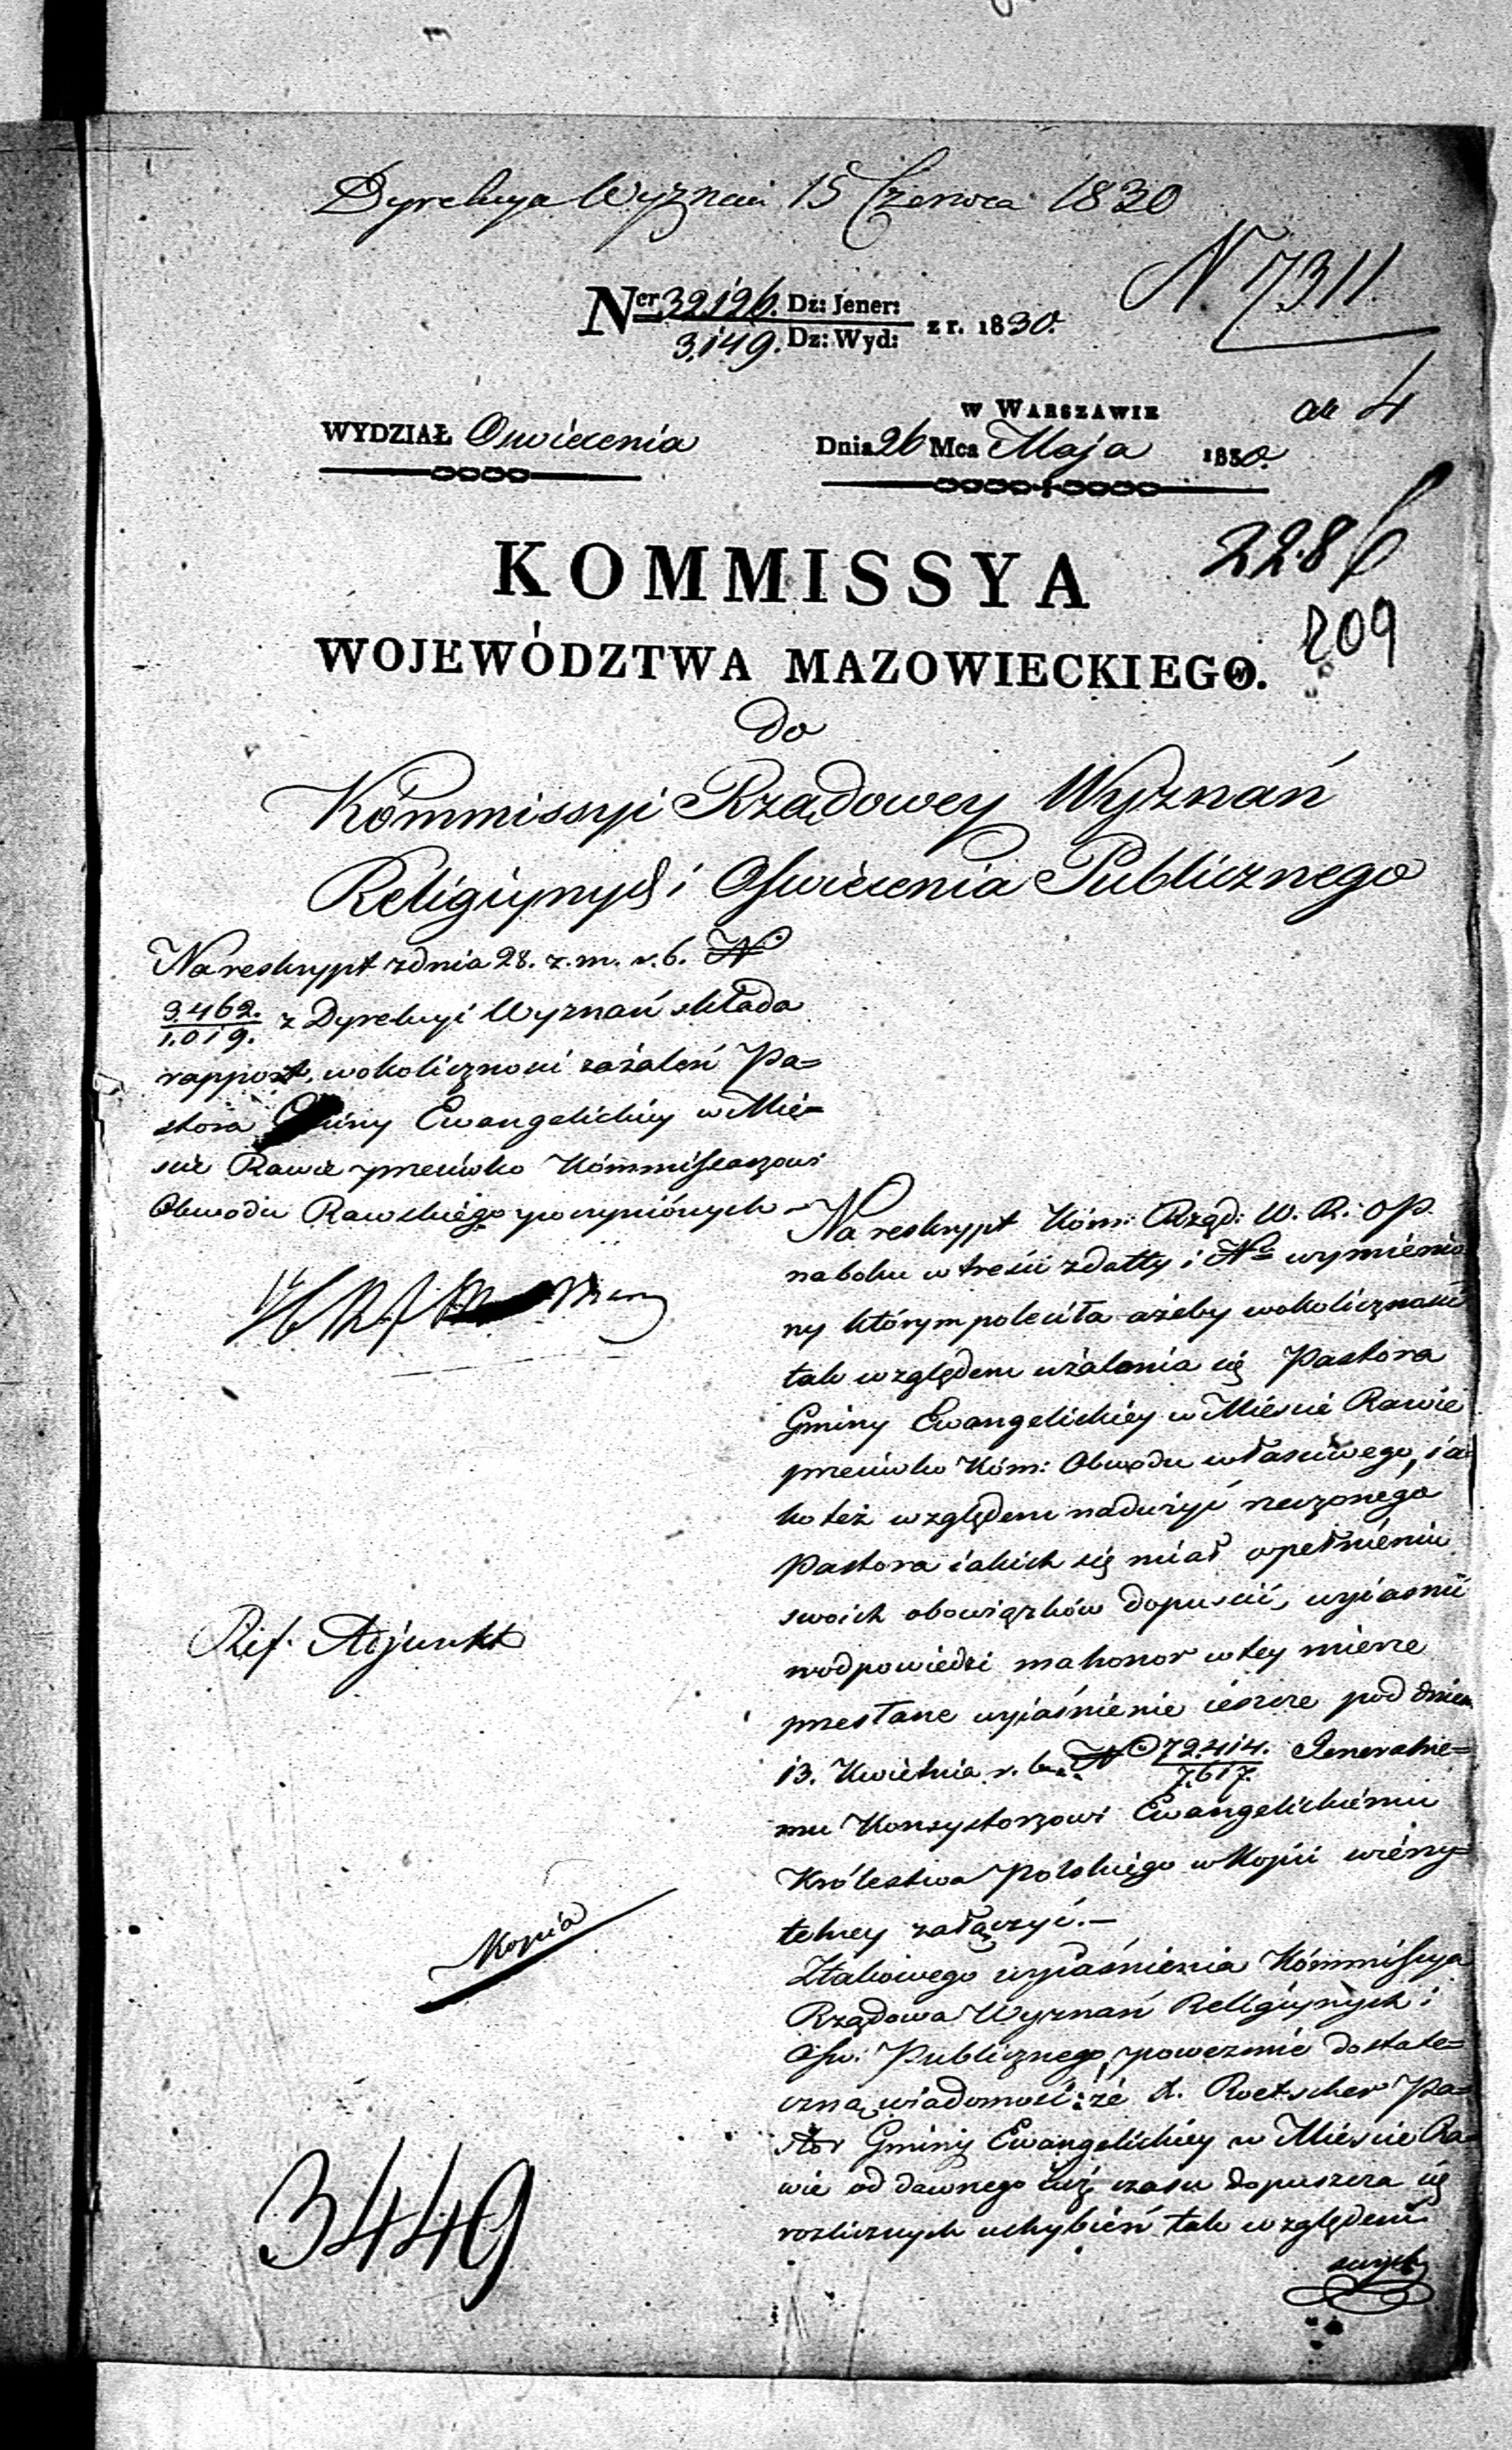 Dyrekcya Wyznań 15 Czerwca 1830
N 7311
Ner 32126. Dz: Jener:
3.149. Dz: Wyd: z r. 1830.
w Warszawie
ad 4
WYDZIAŁ Oswiecenia
Dnia 26 Mca Maja 1830.
2286
209
KOMMISSYA
WOJEWÓDZTWA MAZOWIECKIEGO.
do
Kommissyi Rządowey Wyznań
Religiynych i Oswiecenia Publicznego
Na reskrypt z dnia 28. z. m. r. b. No
3.462.
1.019. z Dyrekcyi Wyznań składa
rapport, w okoliczności zażaleń Pa=
stora Gminy Ewangelickiey w Mie=
scie Rawie przeciwko Kommissarzowi
Obwodu Rawskiego poczynionych
Na reskrypt Kom: Rząd: W. R. i O P.
na boku w treści z datty i No wymienio
ny którym poleciła ażeby w okoliczności
tak względem użalania się Pastora
Gminy Ewangelickiey w Mieście Rawie
przeciwko Kom: Obwodu właściwego, ia=
ko też względem nadużyć rzeczonego
Pastora iakich się miał w pełnieniu
swoich obowiązków dopuścić, wyiaśnić
w odpowiedzi ma honor w tey mierze
przesłane wyiaśnienie ieszcze pod dniem
13. Kwietnia r. b. No 72.414.
7.617. Jeneralne=
mu Konsystorzowi Ewangelickiemu
Królestwa Polskiego w kopii wierzy=
telney załączyć.—
Z takowego wyiaśnienia Kommissya
Rządowa Wyznań Religiynych i
Ośw: Publicznego, powezmie dostate=
czną wiadomość: że X. Roetscher Pa=
stor Gminy Ewangelickiey w Miescie Ra=
wie od dawnego iuż czasu dopuszcza się
rozlicznych uchybień tak względem
swych
Ref. Adjunkt
Kopia
3449